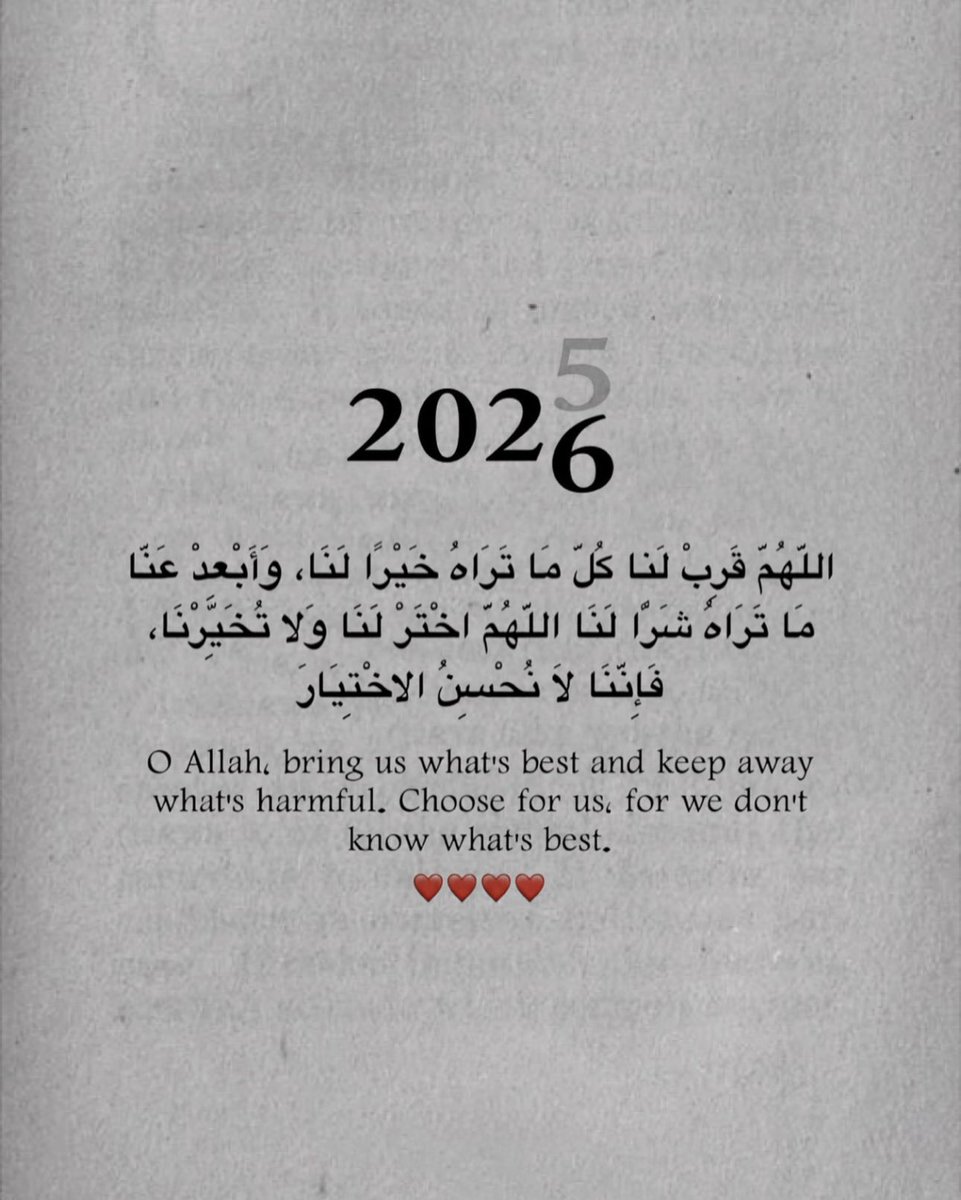 5
2026
اللّهُمّ قَرِبْ لَنا كُلّ مَا تَرَاهُ خَيْرًا لَنَا، وَأَبْعدْ عَنّا
مَا تَرَاهُ شَرًّا لَنَا اللّهُمّ اخْتَرْ لَنَا وَلا تُخَيَّرْنَا،
فَإِنّنَا لاَ نُحْسِنُ الاخْتِيَارَ
O Allah، bring us what's best and keep away
what's harmful. Choose for us، for we don't
know what's best.
❤️❤️❤️❤️